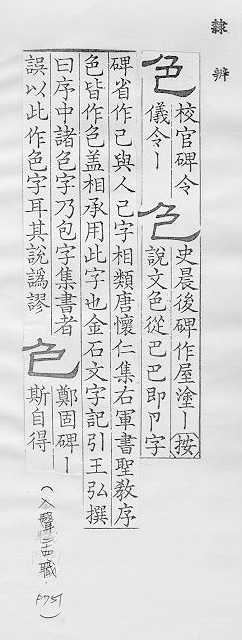 隸辨
色 校官碑令儀令丨 色 史晨後碑作屋塗丨按說文色從巴巴即卪字
碑省作己與人己字相類唐懷仁集右軍書聖教序
色皆作色盖相承用此字也金石文字記引王弘撰
曰序中諸色字乃包字集書者
誤以此作色字耳其說譌謬 色 鄭固碑丨斯自得
(入聲二十四職 P751)